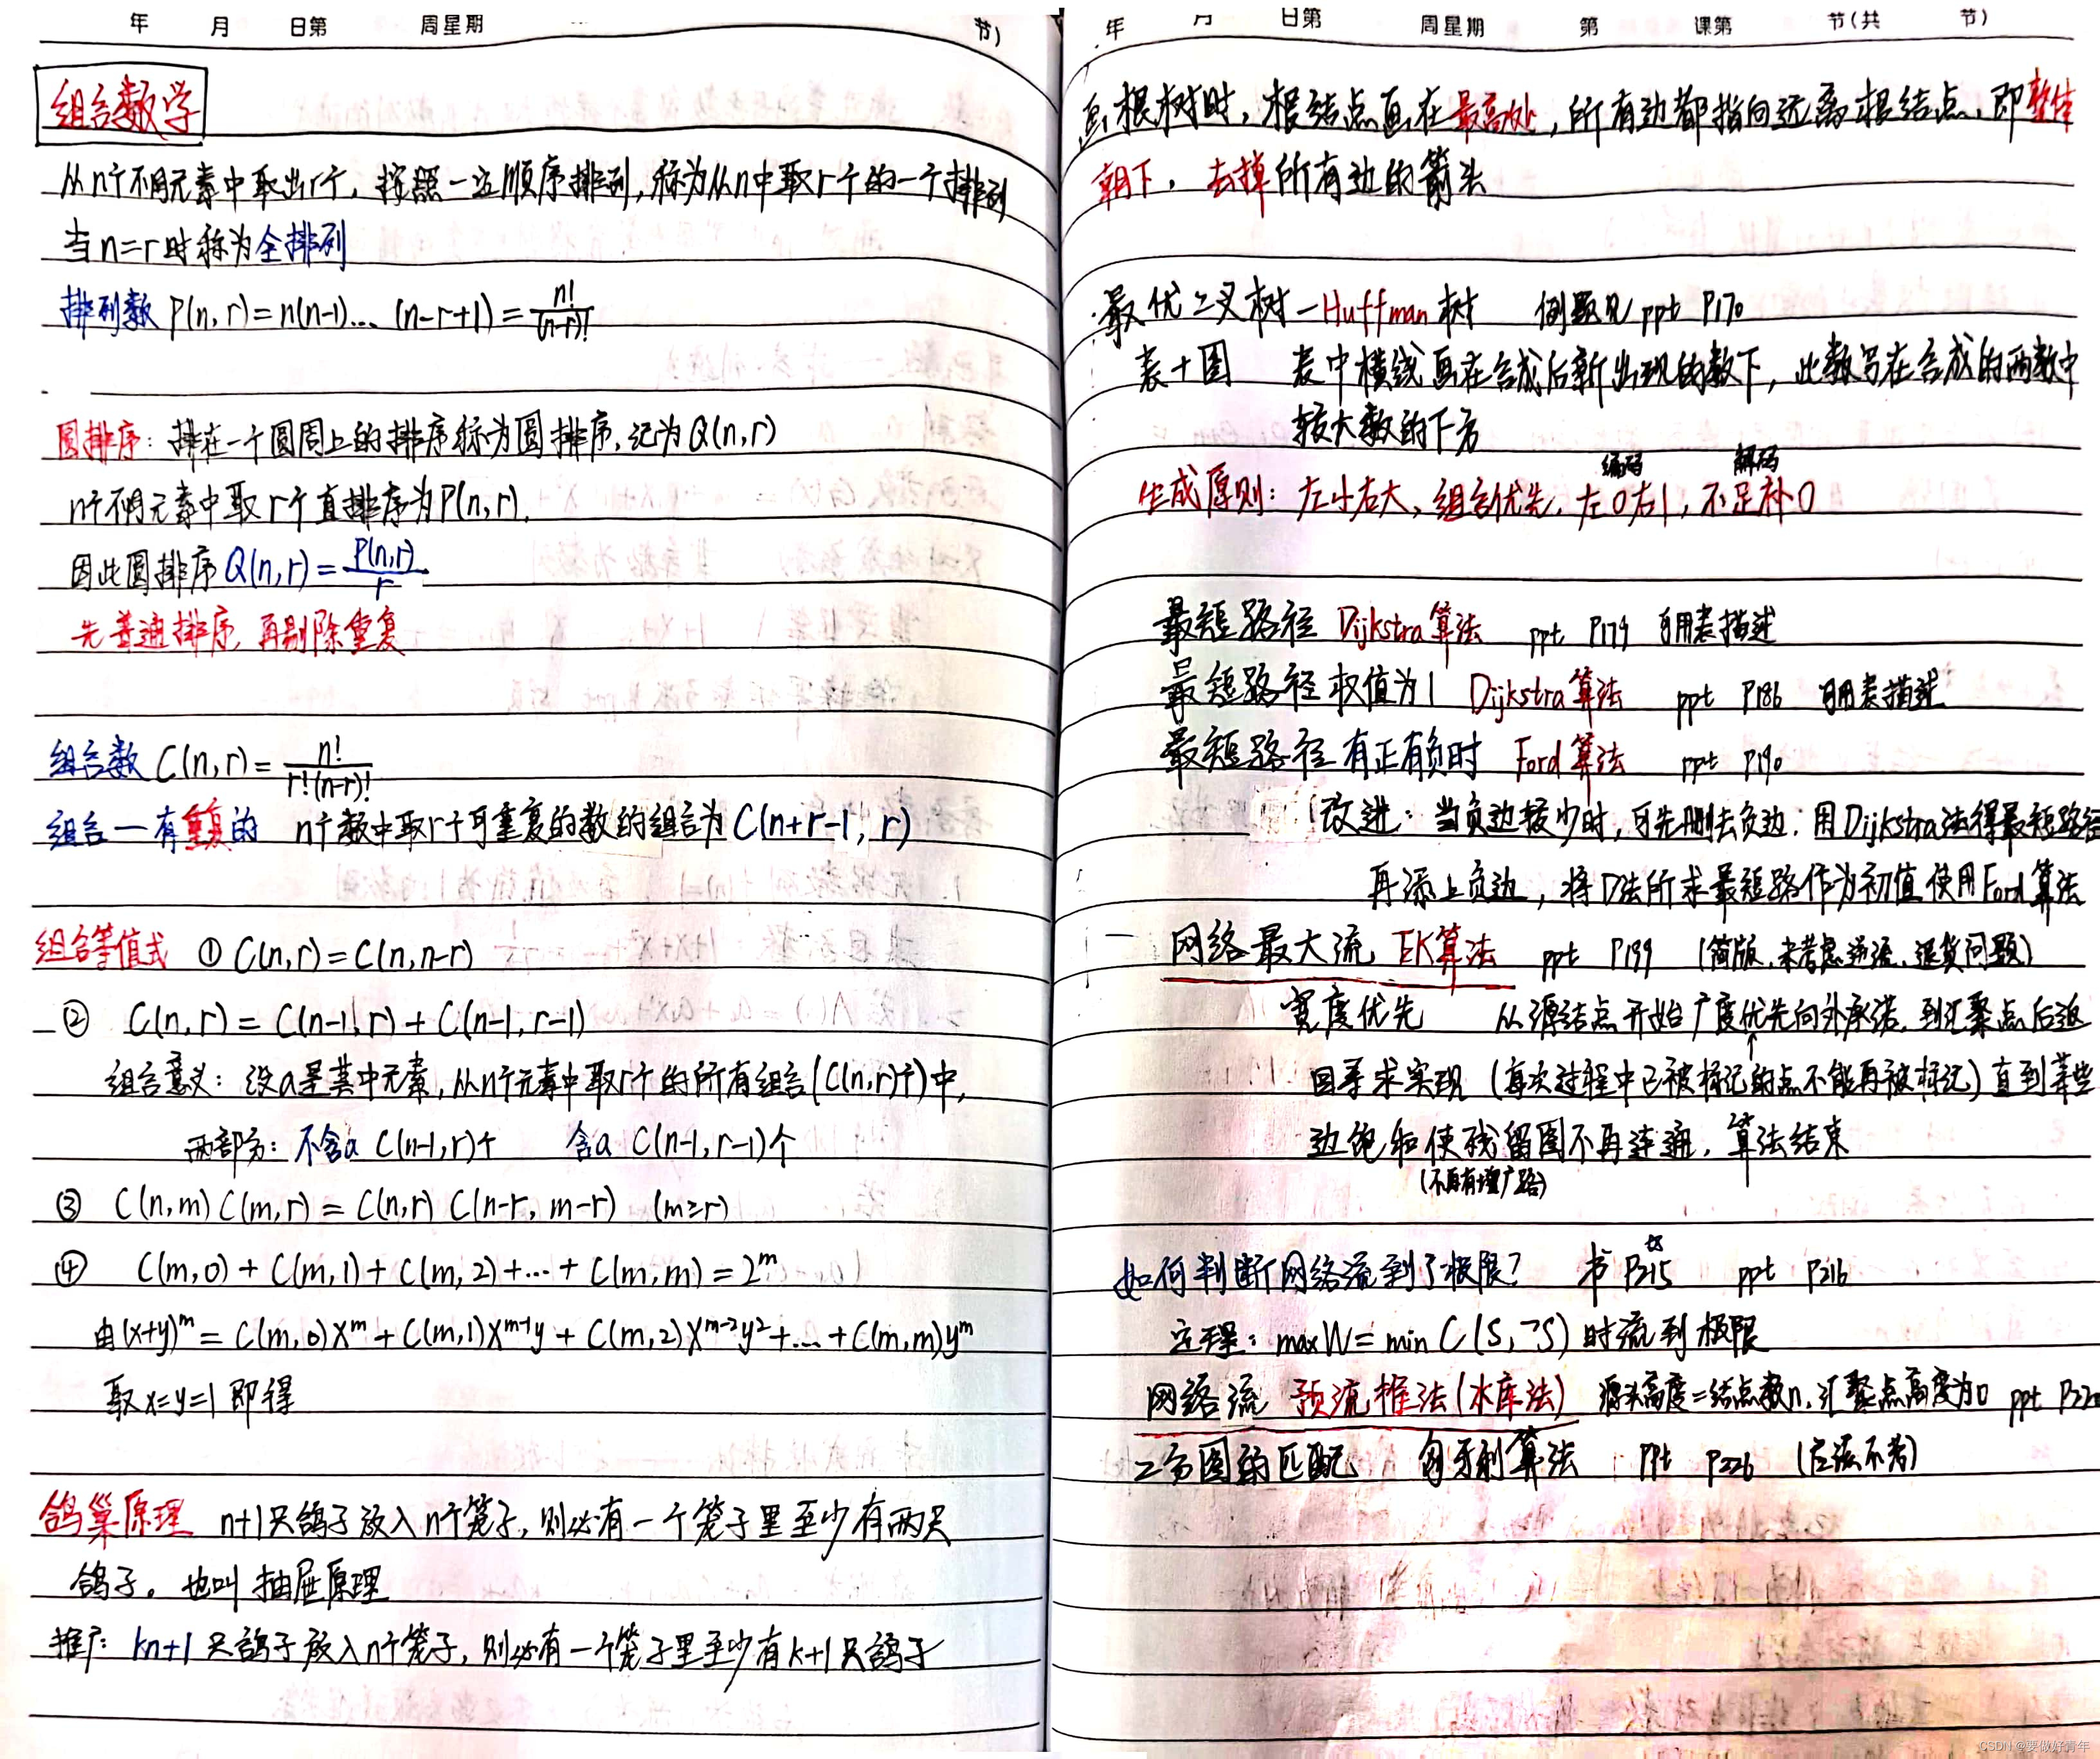 年 月 日第 周星期 节)
组合数学
从n个不同元素中取出r个，按照一定顺序排列，称为从n中取r个的一个排列
当n=r时称为全排列
排列数 P(n,r)=n(n-1)... (n-r+1)=n!/(n-r)!
圆排序：排在一个圆周上的排序称为圆排序，记为Q(n,r)
n个不同元素中取r个直排序为P(n,r).
因此圆排序Q(n,r)=P(n,r)/r
先普通排序，再剔除重复
组合数 C(n,r)=n!/r!(n-r)!
组合一有重复的 n个数中取r个可重复的数的组合为C(n+r-1, r)
组合等值式 ① C(n,r)=C(n,n-r)
② C(n,r)=C(n-1,r)+C(n-1,r-1)
组合意义：设a是其中元素，从n个元素中取r个的所有组合(C(n,r)个)中，
两部分：不含a C(n-1,r)个 含a C(n-1,r-1)个
③ C(n,m)C(m,r)=C(n,r)C(n-r, m-r) (m≥r)
④ C(m,0)+C(m,1)+C(m,2)+...+C(m,m)=2^m
由(x+y)^m=C(m,0)x^m+C(m,1)x^{m-1}y+C(m,2)x^{m-2}y^2+...+C(m,m)y^m
取x=y=1即得
鸽巢原理 n+1只鸽子放入n个笼子，则必有一个笼子里至少有两只
鸽子。也叫抽屉原理
推广：kn+1只鸽子放入n个笼子，则必有一个笼子里至少有k+1只鸽子
年 月 日第 周星期 第 课第 节(共 节)
画根树时，根结点画在最高处，所有边都指向远离根结点，即整体
朝下，去掉所有边的箭头
最优二叉树—Huffman树 例题见ppt P170
表+图 表中横线画在合成后新出现的数下，此数写在合成的两数中
较大数的下方
编码 解码
生成原则：左小右大，组合优先，左0右1，不足补0
最短路径 Dijkstra算法 ppt P179 可用表描述
最短路径权值为1 Dijkstra算法 ppt P186 可用表描述
最短路径有正有负时 Ford算法 ppt P190
改进：当负边较少时，可先删去负边，用Dijkstra法得最短路径
再添上负边，将D法所求最短路作为初值使用Ford算法
网络最大流 EK算法 ppt P199 (简版，未考虑逆流，退货问题)
宽度优先 从源结点开始广度优先向外承诺，到汇聚点后返
回寻求实现(每次过程中已被标记的点不能再被标记)直到某些
边饱和使残留图不再连通，算法结束
(不再有增广路)
如何判断网络流到了极限？ 书P215 ppt P216
定理：maxW=min C(S,¬S)时流到极限
网络流 预流推法(水库法) 源头高度=结点数n，汇聚点高度为0 ppt P220
二分图的匹配 匈牙利算法 ppt P226 (应该不考)
CSDN @要做好青年